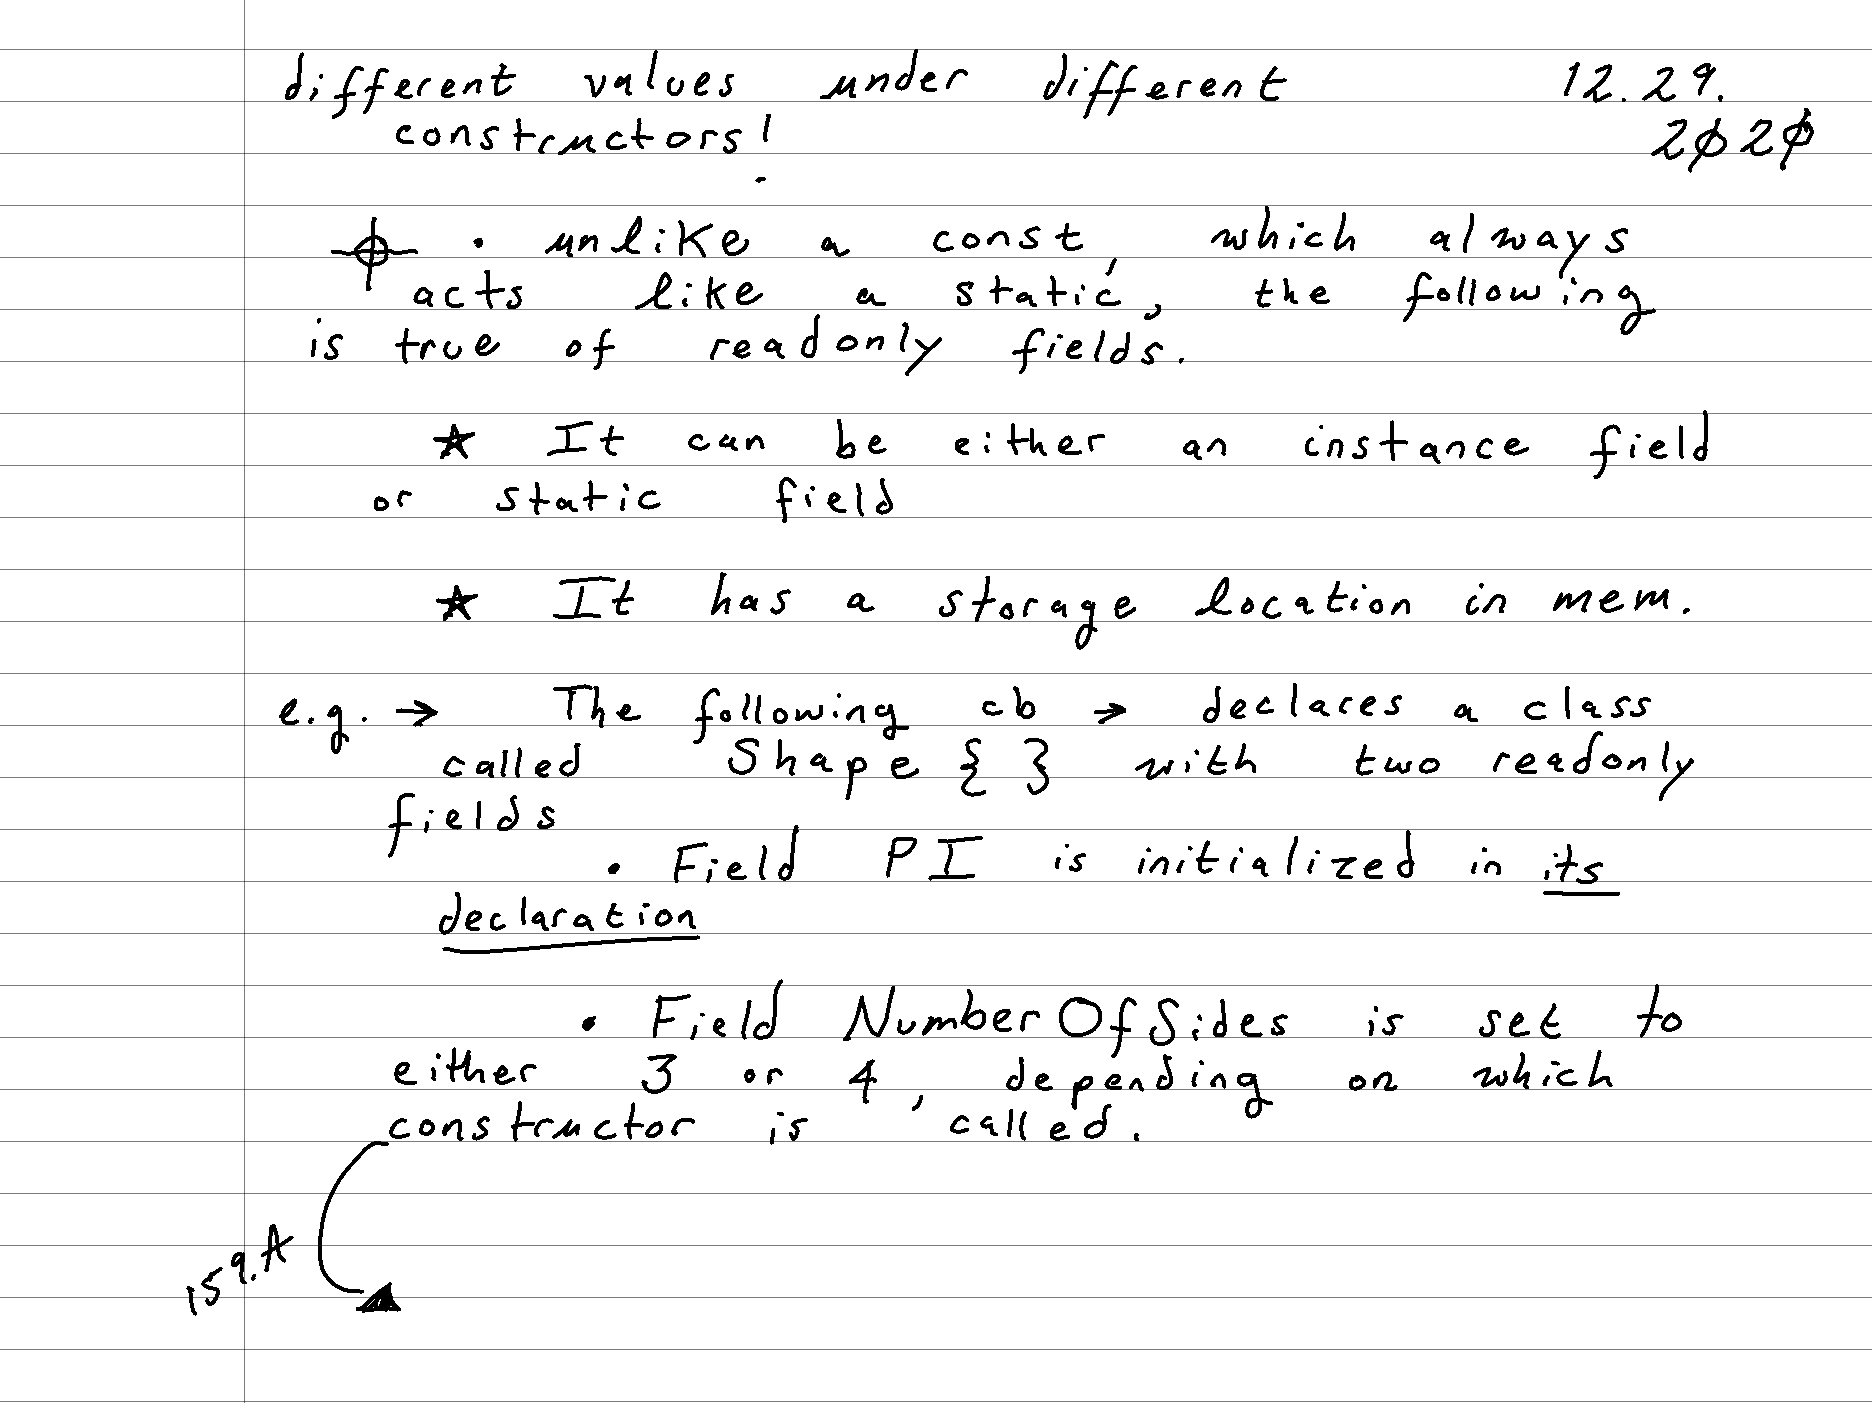 different values under different 12.29.
constructors! 2020
• unlike a const, which always
acts like a static, the following
is true of readonly fields.
★ It can be either an instance field
or static field
★ It has a storage location in mem.
e.g. → The following cb → declares a class
called Shape { } with two readonly
fields
• Field PI is initialized in its
declaration
• Field NumberOfSides is set to
either 3 or 4, depending on which
constructor is called.
159.A